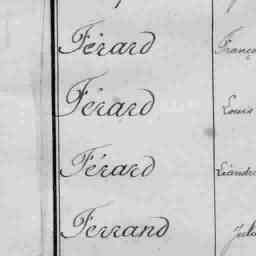 Férard Franço
Férard Louis
Férard Léandre
Ferrand Jule